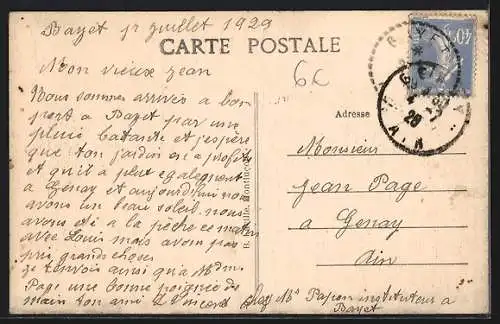 Bayet 1r juillet 1929
CARTE POSTALE
Mon vieux Jean
6c
Nous sommes arrivés a bon
port a Bayet par une
pluie batante et j'espère
que ton jardin en a profité
et qu'il a plut egalement
a Genay et aujourd'hui nous
avons un beau soleil. nous
avons été a la pêche ce matin
avec Louis mais avons pas
pris grands choses
je t'envois ainsi qu'a Mdm.
Page une bonne poignée de
main ton ami
Adresse
Monsieur
Jean Page
a Genay
Ain
chez Mr Papon instituteur a
Bayet